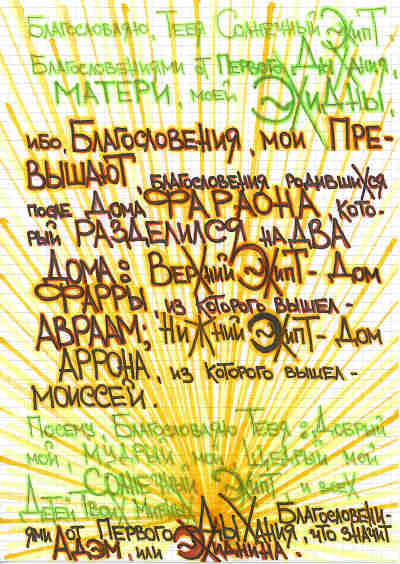 Благословляю, Тебя Солнечный Эжипт,
Благословениями от Первого Дыхания,
МАТЕРИ, моей Эхидны,
ибо, Благословения, мои Пре-
вышают, благословения родившихся
после Дома ФАРАОНА, кото-
рый Разделился на Два
Дома: Верхний Эжипт - Дом
ФАРРЫ из которого вышел -
АВРААМ; Нижний Эжипт - Дом
АРРОНА, из которого вышел -
МОИССЕЙ.
Посему, Благословляю Тебя: Добрый
мой, Мудрый мой Щедрый мой
Солнечный Эжипт и всех
Детей Твоих Мирных Благословени-
ями от Первого Дыхания, что значит
Адэм, или Эхианина.